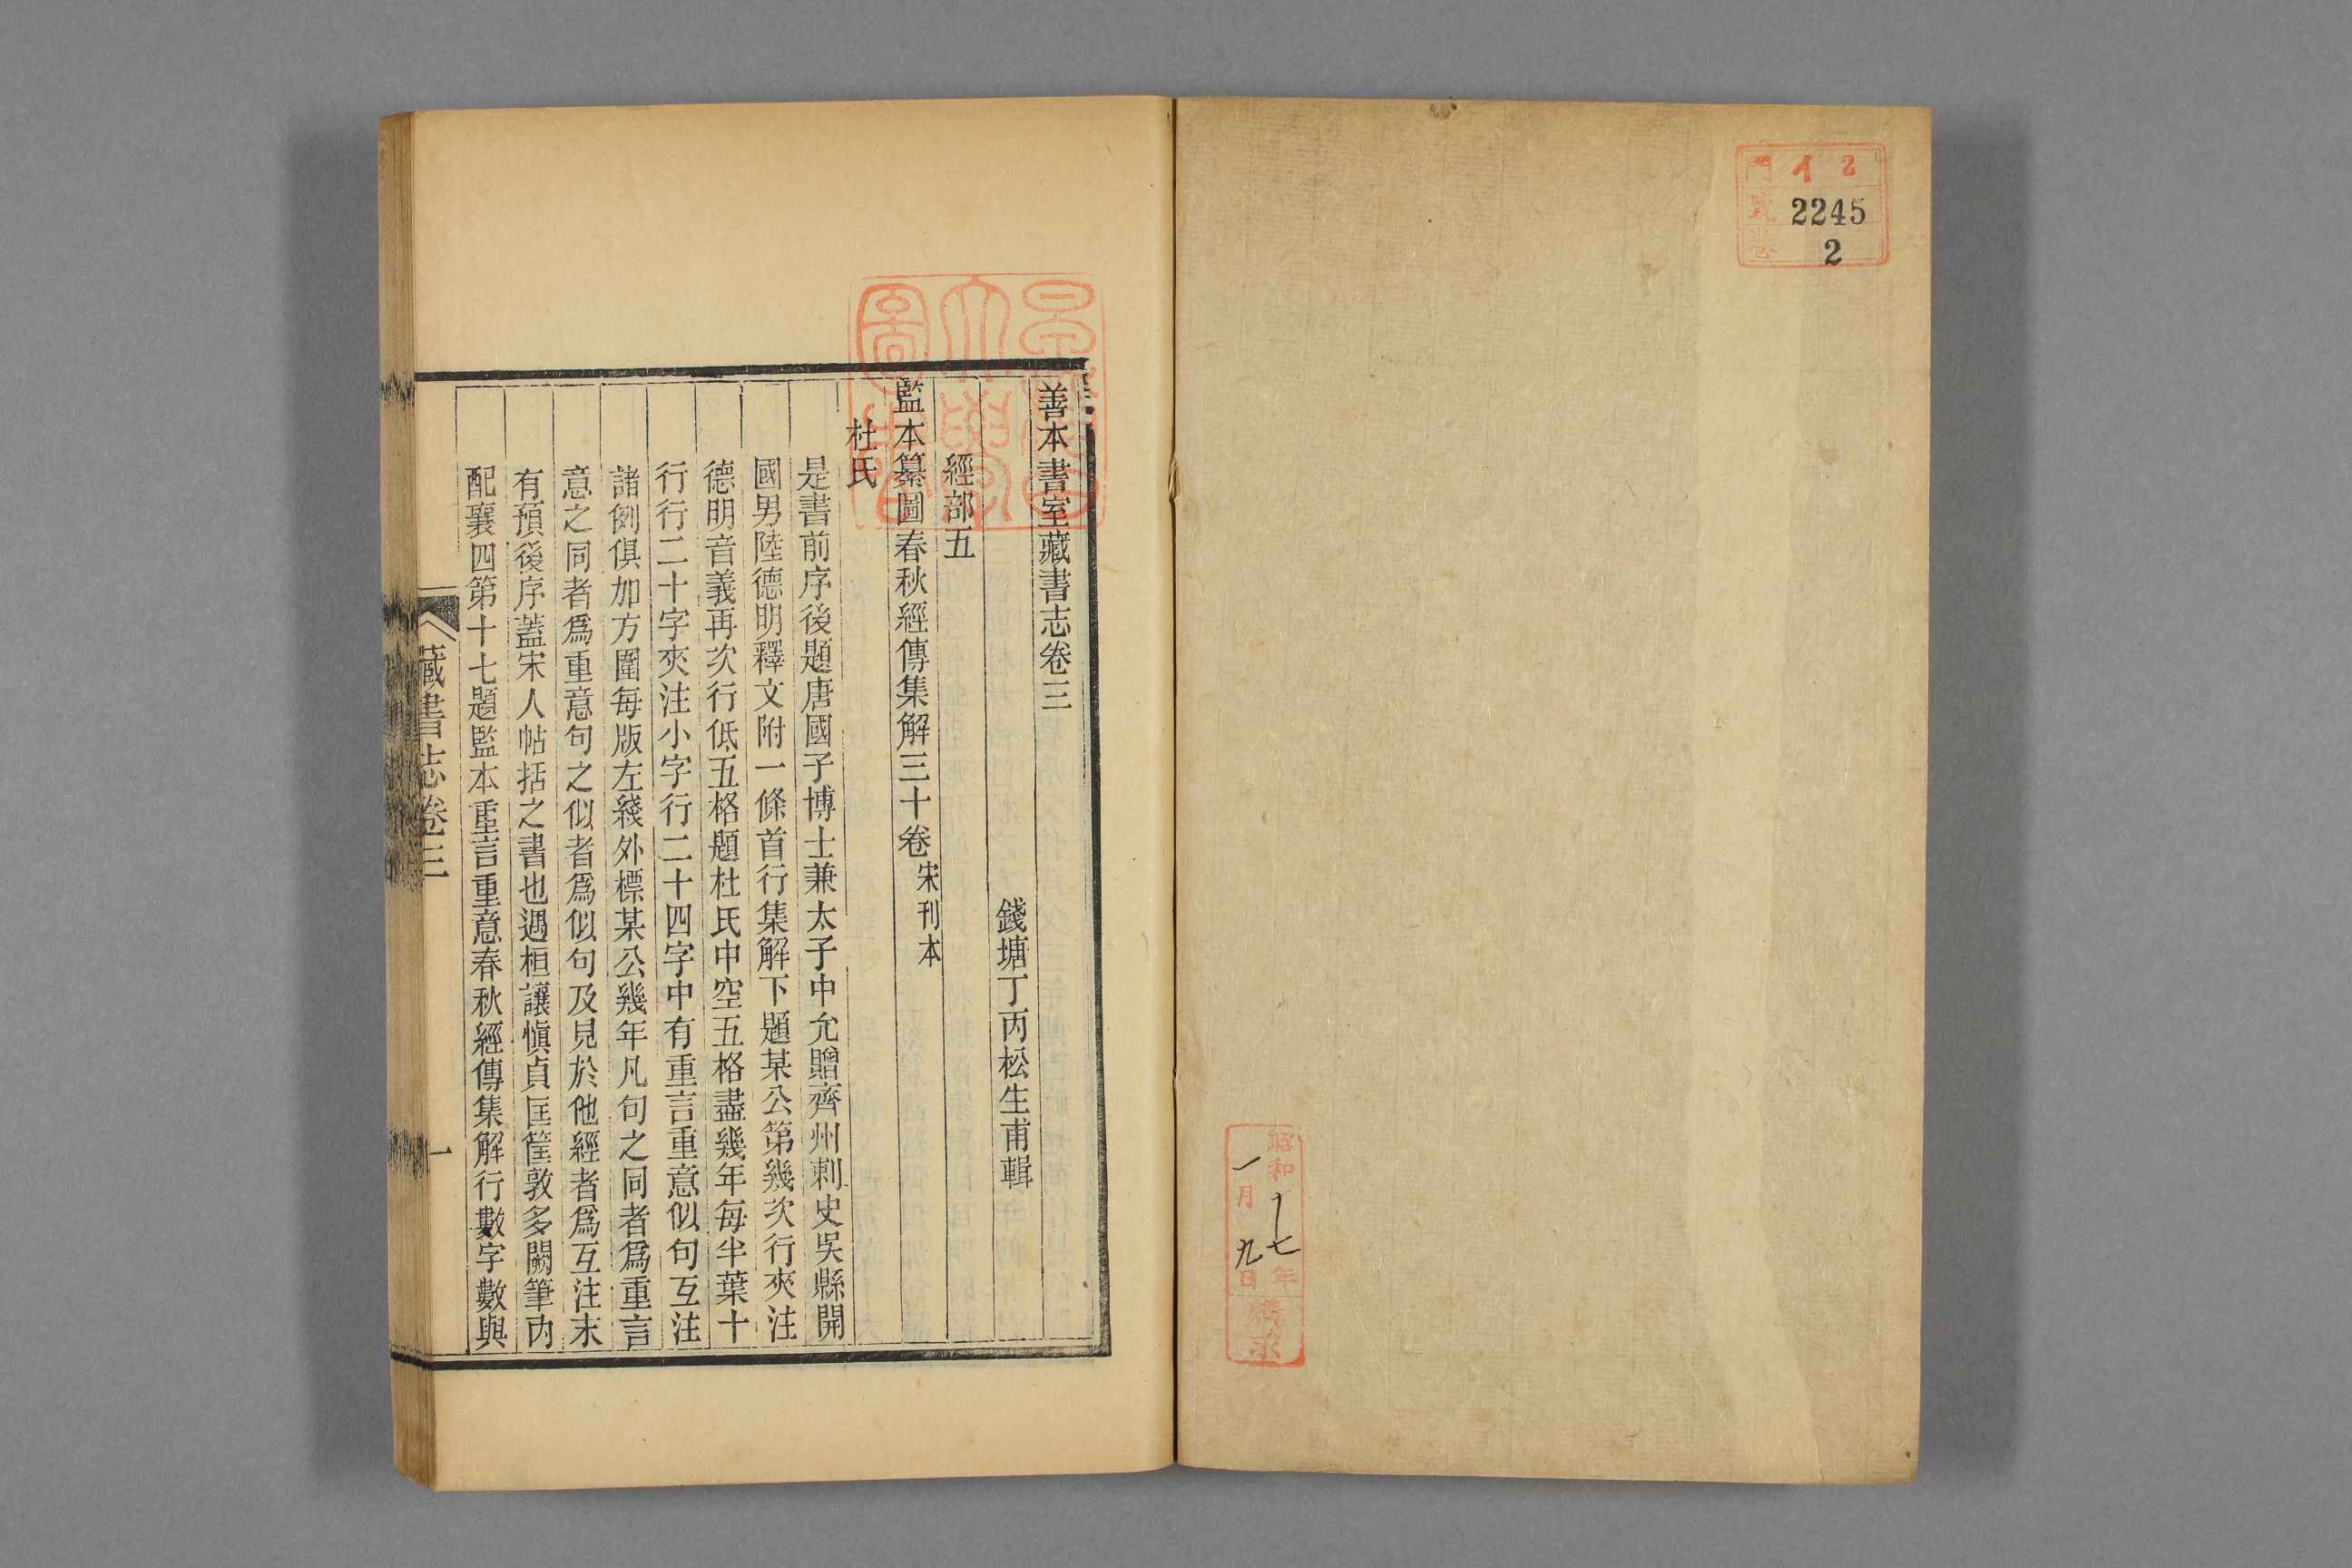 門 イ 2
號 2245
卷 2
昭和十七年
一月九日
購求
善本書室藏書志卷三
錢塘丁丙松生甫輯
經部五
監本纂圖春秋經傳集解三十卷 宋刊本
杜氏
是書前序後題唐國子博士兼太子中允贈齊州刺史吳縣開
國男陸德明釋文附一條首行集解下題某公第幾次行夾注
德明音義再次行低五格題杜氏中空五格盡幾年每半葉十
行行二十字夾注小字行二十四字中有重言重意似句互注
諸例俱加方圍每版左綫外標某公幾年凡句之同者爲重言
意之同者爲重意句之似者爲似句及見於他經者爲互注末
有預後序蓋宋人帖括之書也遇桓讓愼貞匡筐敦多闕筆内
配襄四第十七題監本重言重意春秋經傳集解行數字數與
藏書志卷三
一